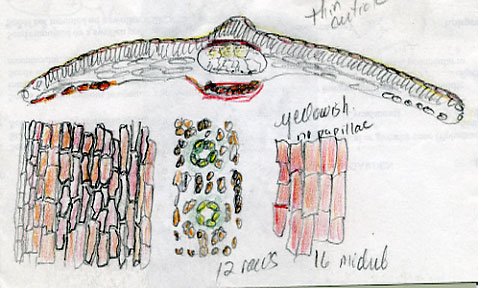 thin
cuticle
yellowish
no papillae
12 rows
16 midrib